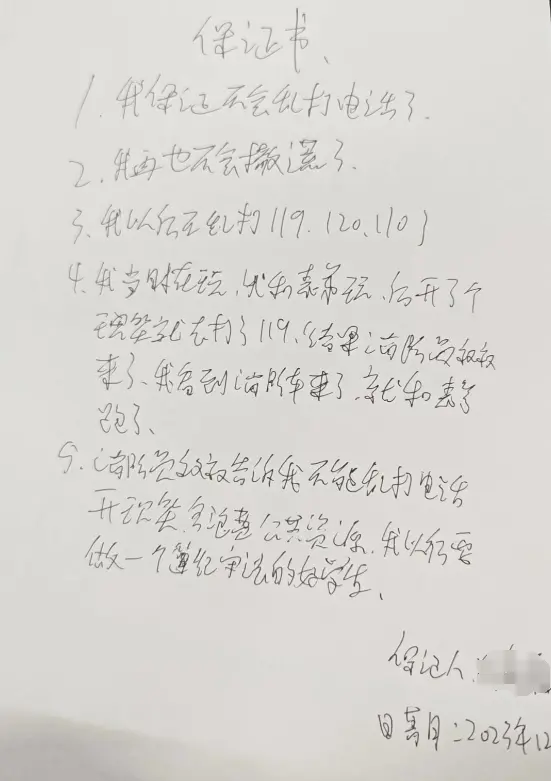 保证书、
1、我保证不会乱打电话了、
2、我再也不会撒谎了、
3、我以后不乱打119、120、110了
4、我当时在玩、我和表弟玩、后开了个
玩笑就去打了119、结果消防员叔叔
来了、我看到消防车来了、就和表弟
跑了、
5、消防员叔叔告诉我不能乱打电话
开玩笑、会浪费公共资源、我以后要
做一个遵纪守法的好学生、
保证人、
日期：2023年12